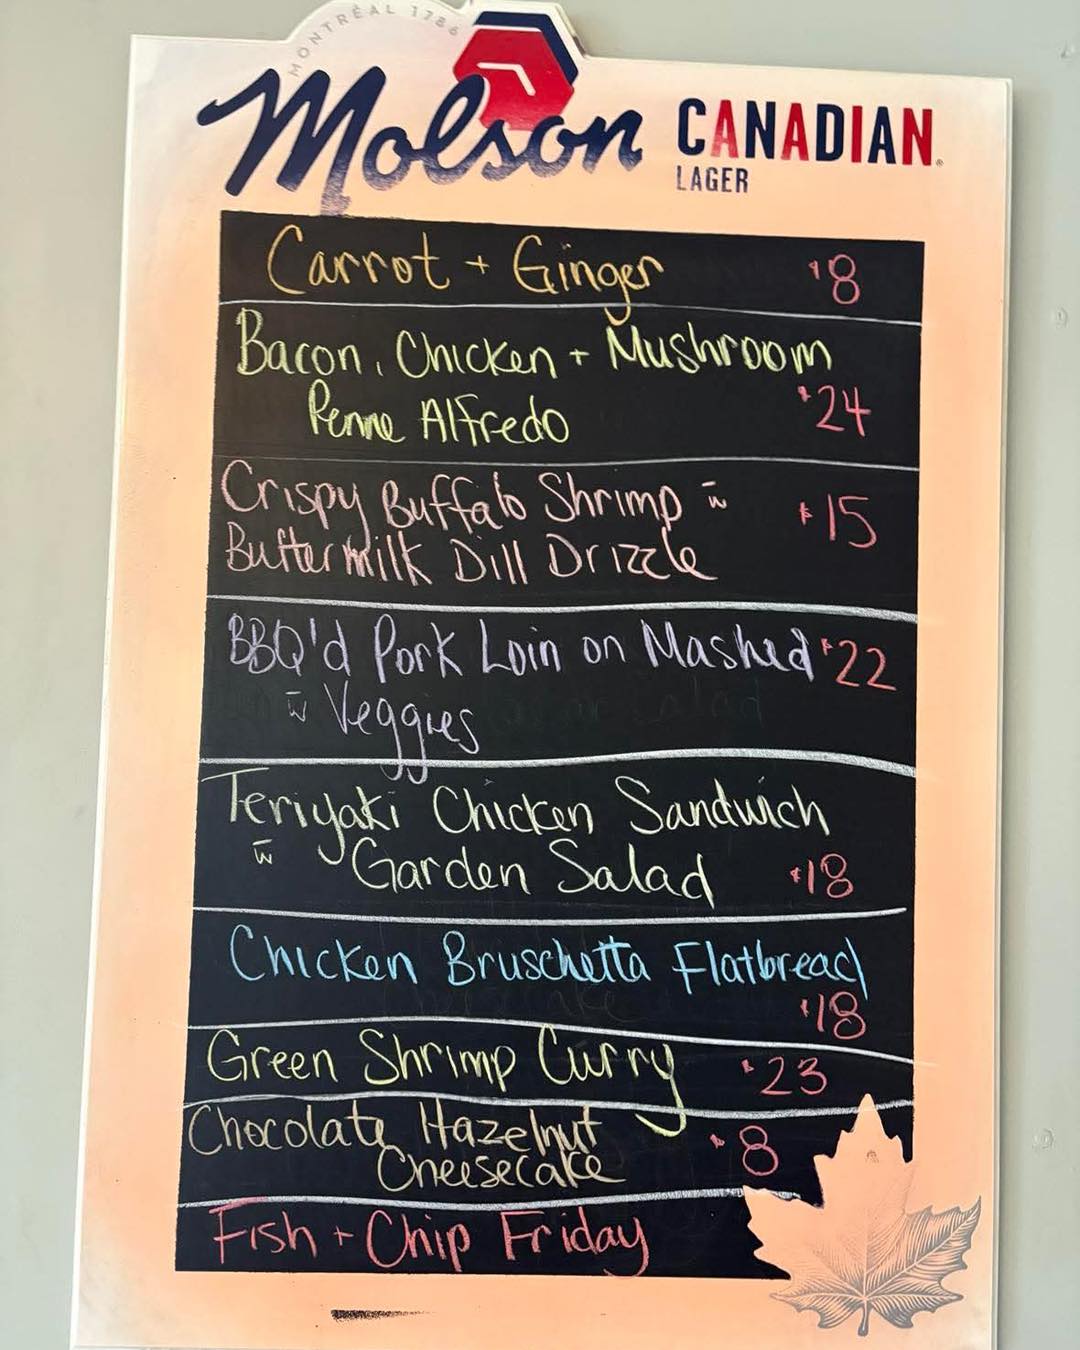 MONTRÉAL 1786
Molson CANADIAN
LAGER
Carrot + Ginger $8
Bacon, Chicken + Mushroom
Penne Alfredo $24
Crispy Buffalo Shrimp w̄ $15
Buttermilk Dill Drizzle
BBQ'd Pork Loin on Mashed $22
w̄ Veggies
Teriyaki Chicken Sandwich
w̄ Garden Salad $18
Chicken Bruschetta Flatbread
$18
Green Shrimp Curry $23
Chocolate Hazelnut
Cheesecake $8
Fish + Chip Friday